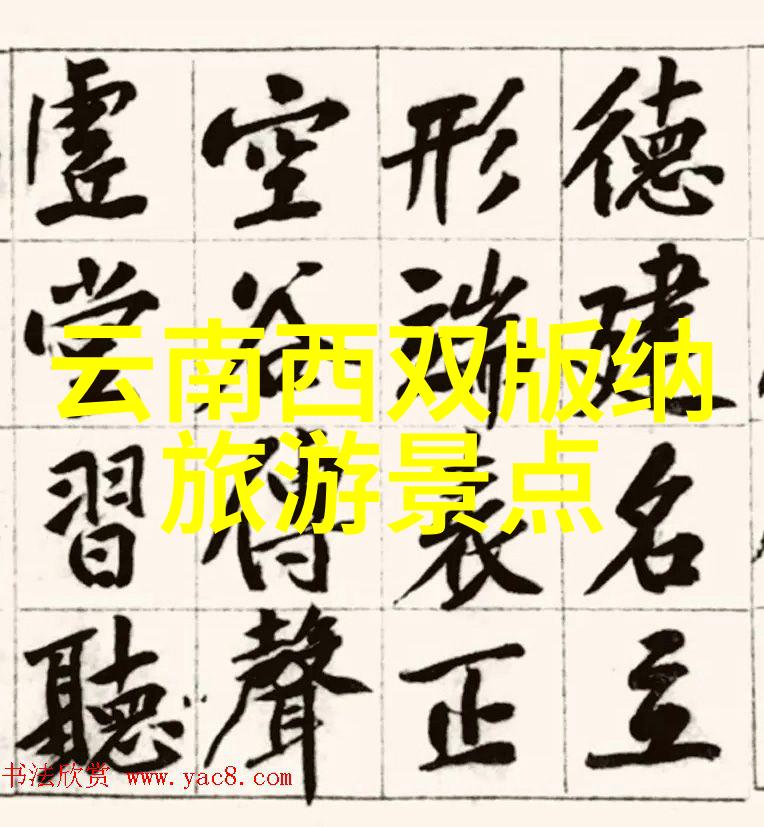 德建名立
形端表正
空谷傳聲
虛堂習聽
云南西双版纳
旅游景点
书法欣赏 www.yac8.com